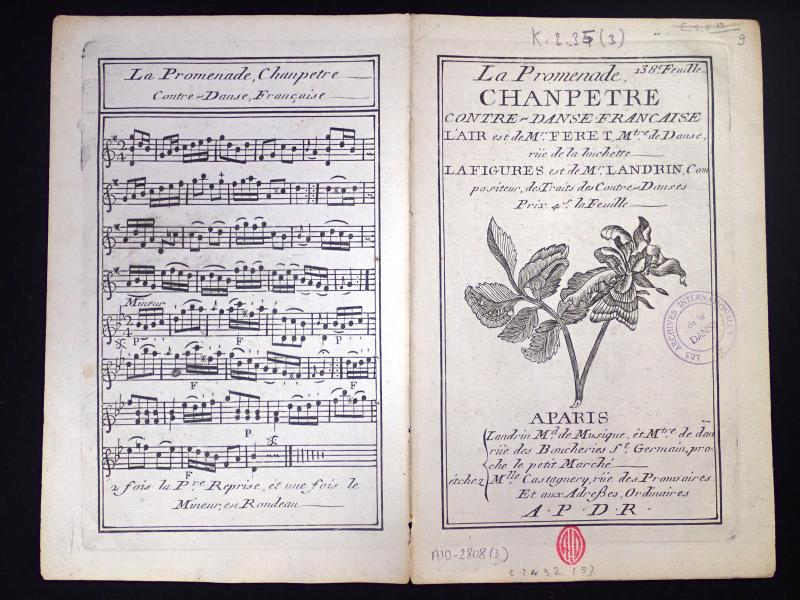 La Promenade, Chanpetre
Contre-Danse, Française
Mineur
P F P
F
F
P.
F
2 fois la Pre Reprise, et une fois le
Mineur, en Rondeau
K. 2. 35 (3)
9
La Promenade, 138e Feuille
CHANPETRE
CONTRE-DANSE-FRANCAISE
L'AIR est de Mr. FERET, Mtre de Danse,
rüe de la huchette
LA FIGURES est de Mr. LANDRIN, Com
positeur, des Traits des Contre-Danses
Prix 4 s. la Feuille
LES ARCHIVES INTERNATIONALES
de la
DANSE
A PARIS
Landrin Md de Musique, ét Mtre de dan
rüe des Boucheries St. Germain, pro-
che le petit Marché
étchez Mlle Castagnery, rüe des Prouvaires
Et aux Adreßes, Ordinaires
A. P. D. R.
AID-2808 (3)